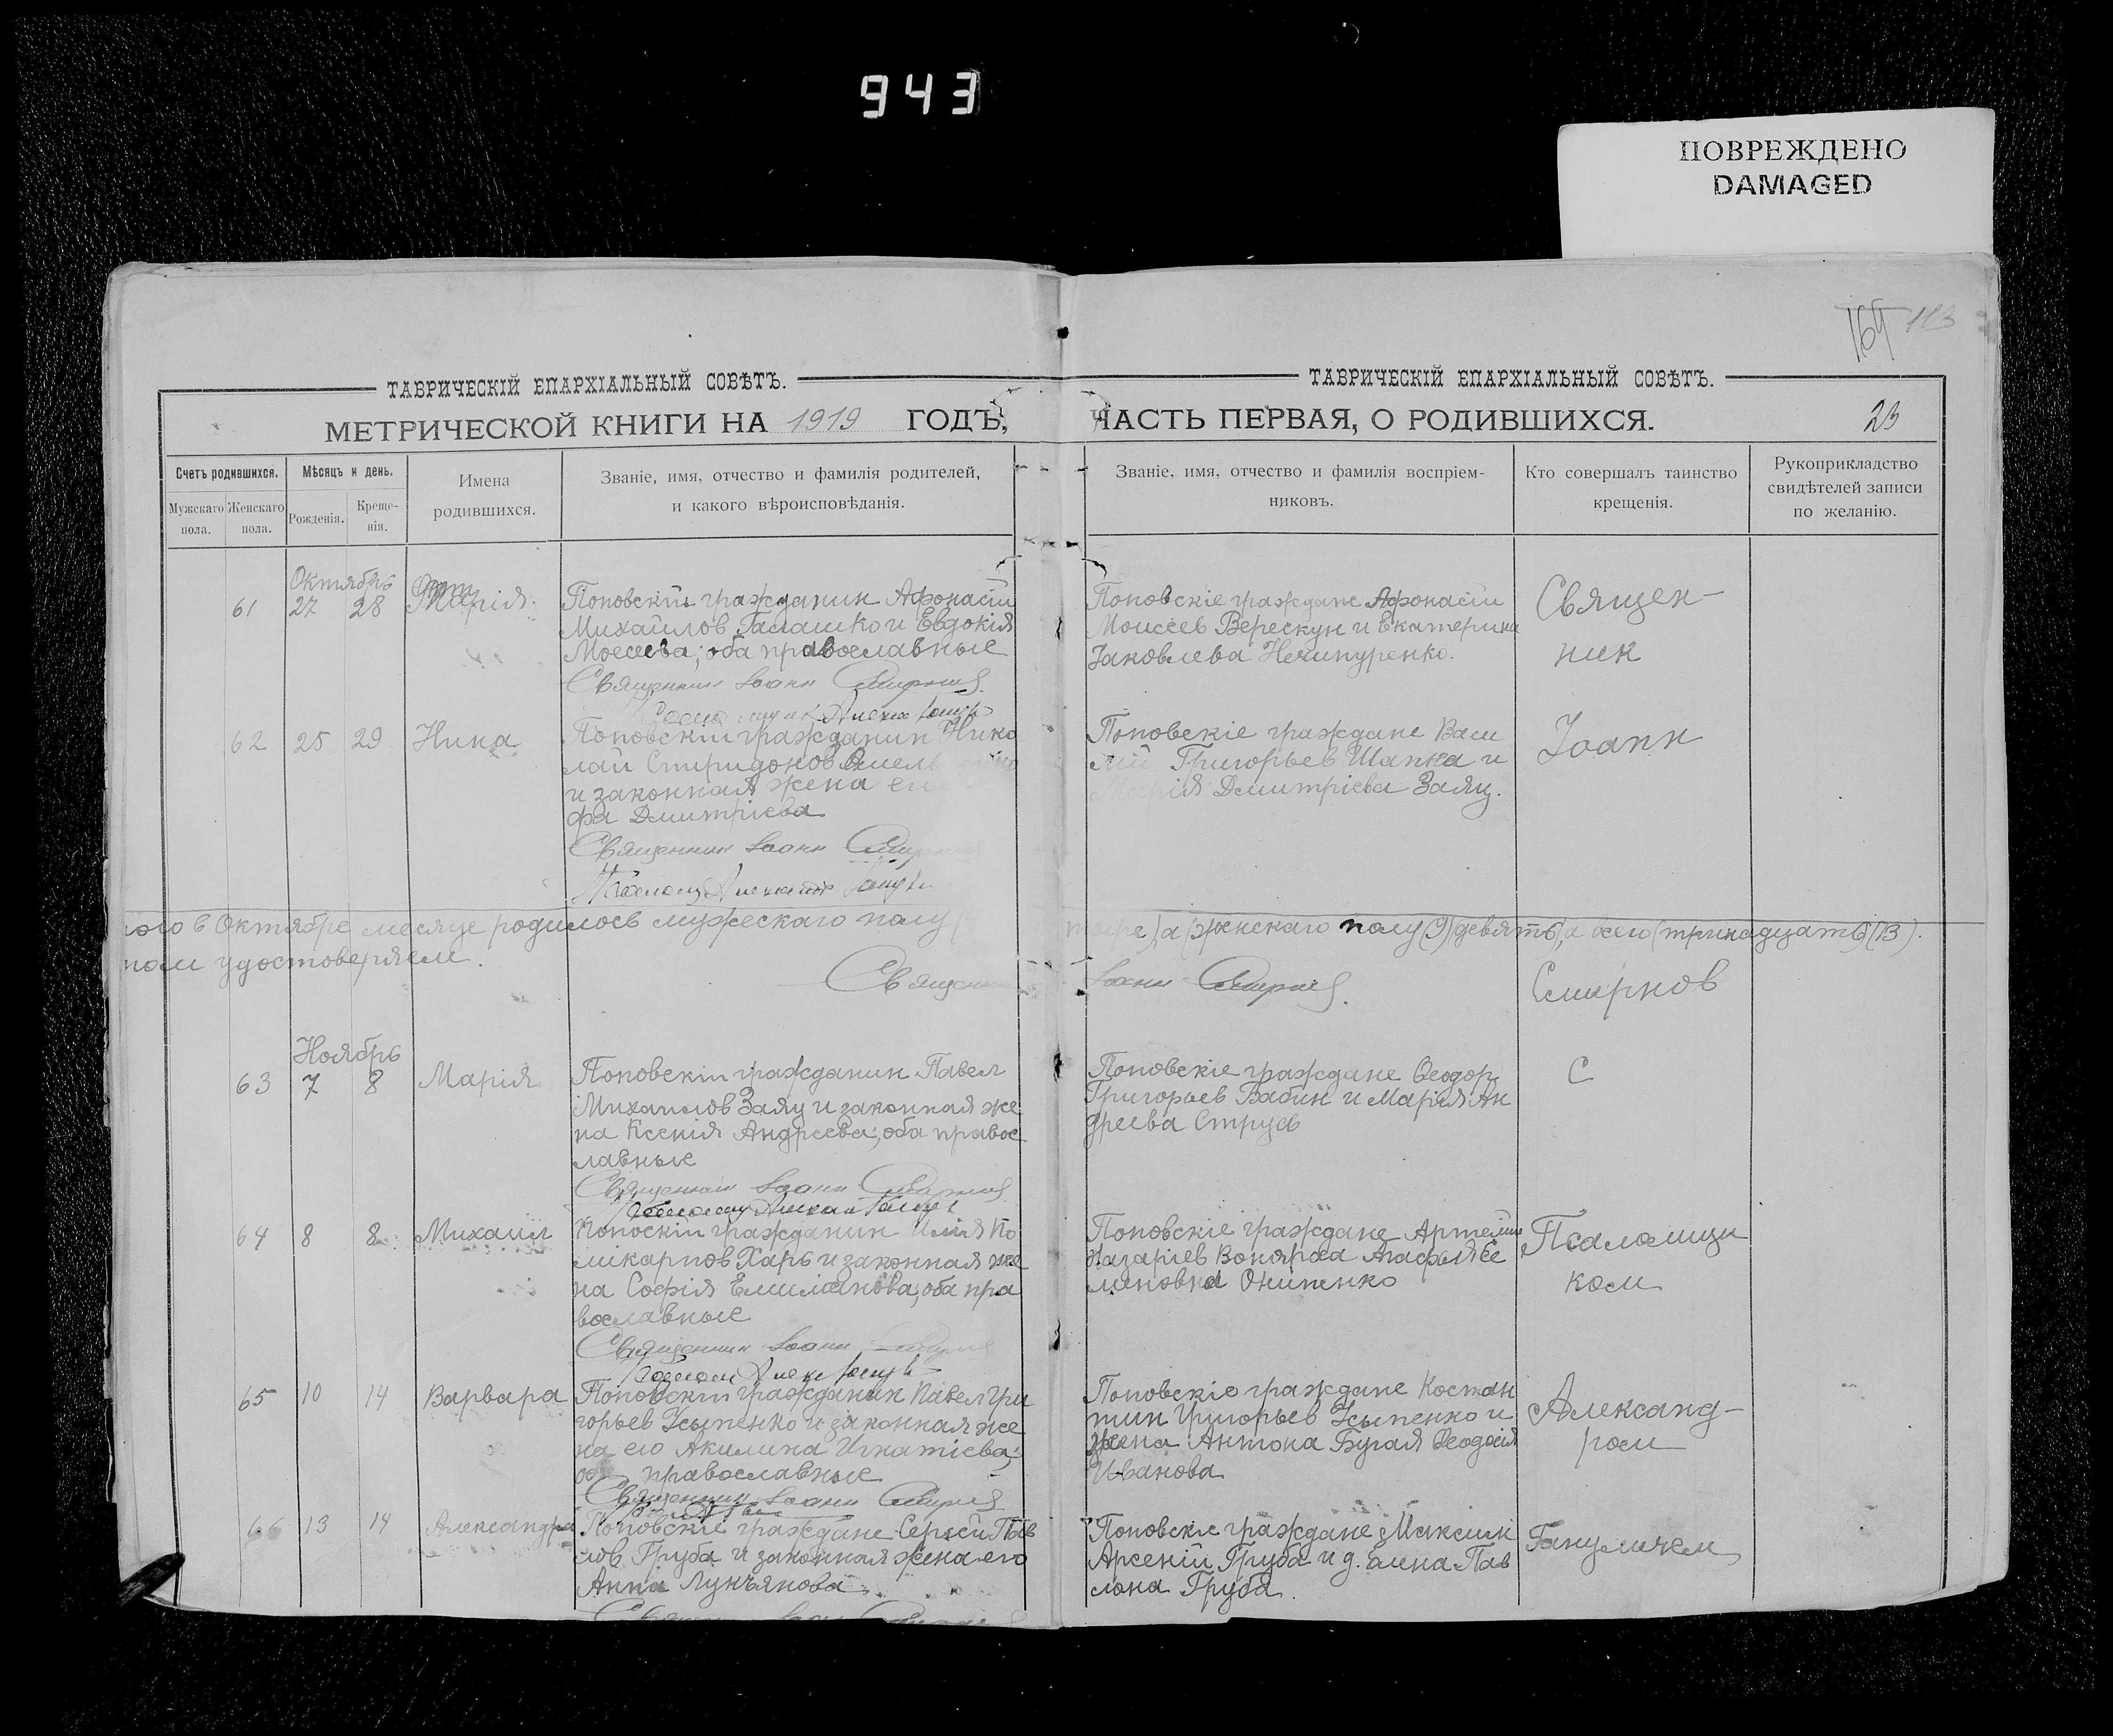 943
ПОВРЕЖДЕНО
DAMAGED
164 113
ТАВРИЧЕСКІЙ ЕПАРХІАЛЬНЫЙ СОВѢТЪ.
МЕТРИЧЕСКОЙ КНИГИ НА 1919 ГОДЪ,
Счетъ родившихся.
Мужскаго пола.
Женскаго пола.
Мѣсяцъ и день.
Рожденія.
Креще-
нія.
Имена
родившихся.
Званіе, имя, отчество и фамилія родителей,
и какого вѣроисповѣданія.
ТАВРИЧЕСКІЙ ЕПАРХІАЛЬНЫЙ СОВѢТЪ.
ЧАСТЬ ПЕРВАЯ, О РОДИВШИХСЯ.
23
Званіе, имя, отчество и фамилія воспріем-
никовъ.
Кто совершалъ таинство
крещенія.
Рукоприкладство
свидѣтелей записи
по желанію.
Октябрь
61 27 28 Марія
Поповскій гражданин Афонасій
Михайлов Галашко и Евдокія
Моеева; оба православные
Священник Іоанн Смирнов
Поповскіе граждане Афонасій
Моисеев Верескун и Екатерина
Іаковлева Нечипуренко.
Священ-
ник
62 25 29 Нина
Поповскій гражданин Нико
лай Спиридонов
и законная жена
фа Дмитріева
Священник Іоанн
Поповскіе граждане Васи
лій Григорьев Шапка и
Марія Дмитріева Заяц.
Іоанн
в Октябре месяце родилось мужескаго полу
а женскаго полу (9) девять, а всего (тринадцать) (13).
удостоверяем.
Священ
Іоанн Смирнов.
Смирнов
Ноябрь
63 7 8 Марія
Поповскій гражданин Павел
Михаилов Заяц и законная же
на Ксенія Андреева; оба правос
лавные
Священник Іоанн Смирнов
Поповскіе граждане Ѳеодор
Григорьев Бабик и Марія Ан
дреева Струев
С
64 8 8 Михаил
Попоскій гражданин Илія По
ликарпов Харь и законная же
на Софія Емилианова, оба пра
вославные
Священник Іоанн
Поповскіе граждане Артемий
Назаріев и Агафья Се
меновна Онипенко
Псаломщи
ком
65 10 14 Варвара
Поповскій гражданин Павел Гри
горьев Усыпенко и законная же
на его Акилина Игнатіева;
православные
Священник Іоанн Смирнов
Поповскіе граждане Костан
тин Григорьев Усыпенко и
жена Антона Бугая Ѳеодосія
Иванова
Александ-
ром
66 13 14 Александра
Поповскіе граждане Сергей Пав
лов Груба и законная жена его
Анна Лукъянова
Поповскіе граждане Максим
Арсеній Груба и д. Елена Пав
лова Груба.
Гануличем